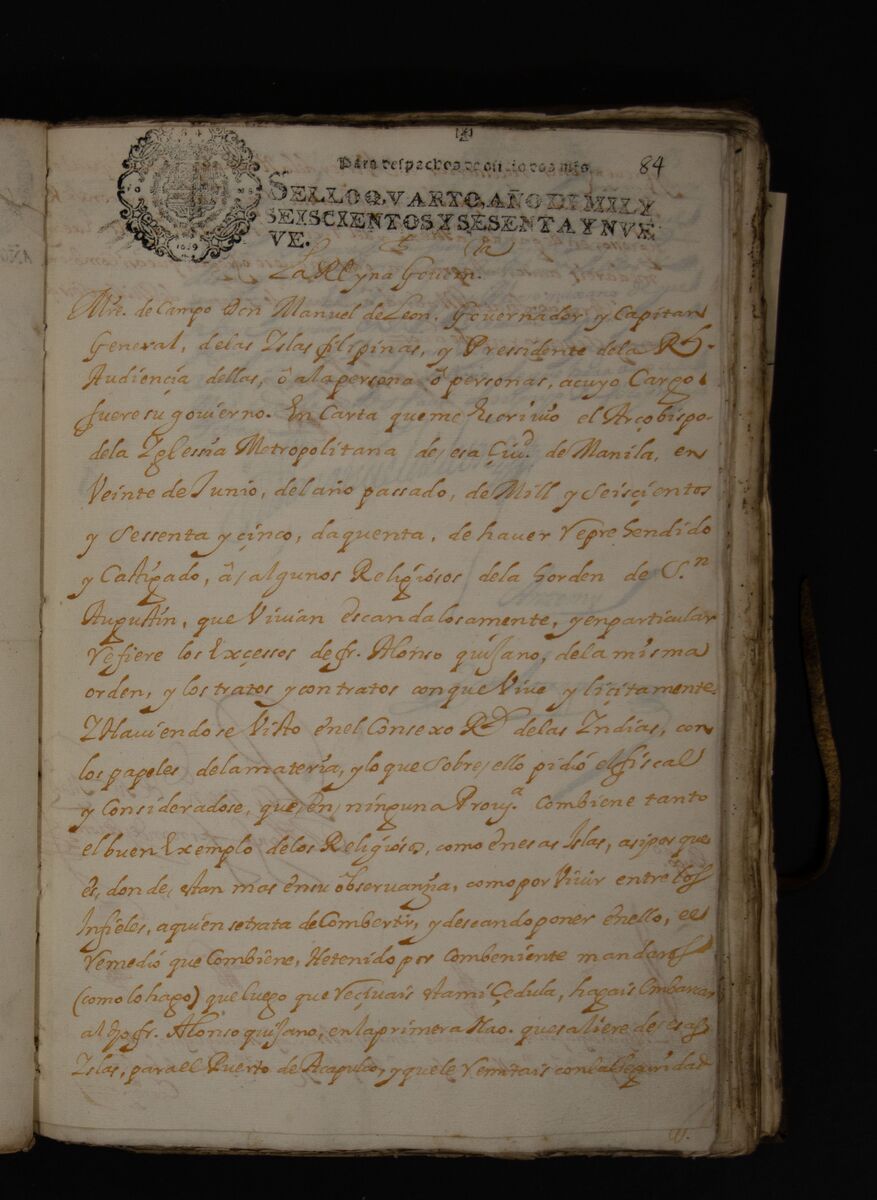 84
Para despachos de oficio dos mrs.
SELLO QVARTO, AÑO DE MIL Y
SEISCIENTOS Y SESENTA Y NVE
VE.
1669
La Reyna Goverra.
Mre. de Campo Don Manuel de Leon. Governador y Capitan
General, delas Yslas filipinas, y Pressidente dela Rl.
Audiencia dellas, ô ala persona ô personas, acuyo Cargo
fuere su govierno. En Carta que me Escrivio el Arçobispo
dela Yglessia Metropolitana de essa Çiud. de Manila, en
Veinte de Junio, del año passado, de Mill y Seisçientos
y Sessenta y çinco, da quenta, de haver reprehendido
y Castigado, â algunos Religiosos dela horden de Sn.
Augustin, que Vivian escandalosamente, y en particular
refiere los Excessos de fr. Alonso quijano, de la misma
orden, y los tratos y contratos con que Vive yliçitamente.
Y Haviendose Visto en el Consexo Rl. delas Yndias, con
los papeles dela materia, y lo que sobre ello pidió el fiscal
y Consideradose, que en ninguna Prouya. Combiene tanto
el buen Exemplo de los Religiosos, como en esas Islas, asi por que
es, donde, stan mas en su observanzia, como por Vivir entre los
Infieles, a quien se trata de Combertir, y deseando poner en ello, el
remedio que Combiene, He tenido por combeniente mandaros
(como lo hago) que luego que reçivais sta mi Çedula, hagais Embarcar
al dho fr. Alonso quijano, en la primera Nao. que saliere de esas
Islas, para el Puerto de Acapulco, y que le remitais con la seguridad